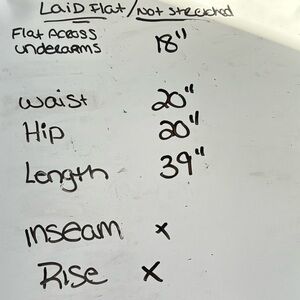 LaiD Flat/Not Stretched
Flat Across 18"
underarms
waist 20"
Hip 20"
Length 39"
inseam x
Rise x